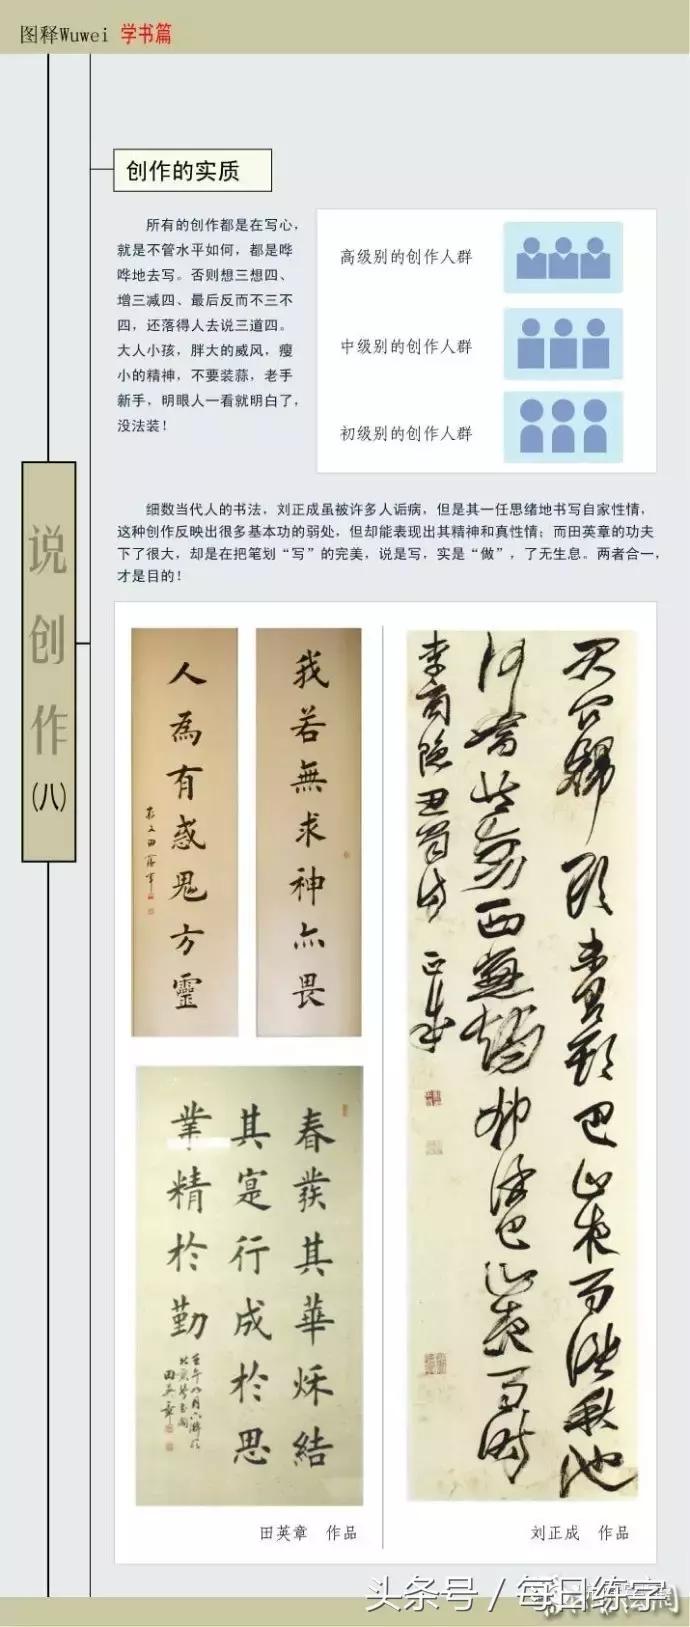 图释Wuwei 学书篇
创作的实质
所有的创作都是在写心，
就是不管水平如何，都是哗
哗地去写。否则想三想四、
增三减四、最后反而不三不
四，还落得人去说三道四。
大人小孩，胖大的威风，瘦
小的精神，不要装蒜，老手
新手，明眼人一看就明白了，
没法装！
高级别的创作人群
中级别的创作人群
初级别的创作人群
说创作(八)
细数当代人的书法，刘正成虽被许多人诟病，但是其一任思绪地书写自家性情，
这种创作反映出很多基本功的弱处，但却能表现出其精神和真性情；而田英章的功夫
下了很大，却是在把笔划“写”的完美，说是写，实是“做”，了无生息。两者合一，
才是目的！
我若無求神亦畏
人為有惑鬼方靈
春發其華秌結
其寔行成於思
業精於勤
田英章
田英章 作品
君问归期未有期巴山夜雨涨秋池
何当共剪西窗烛却话巴山夜雨时
李商隐 正成
刘正成 作品
头条号 / 每日练字